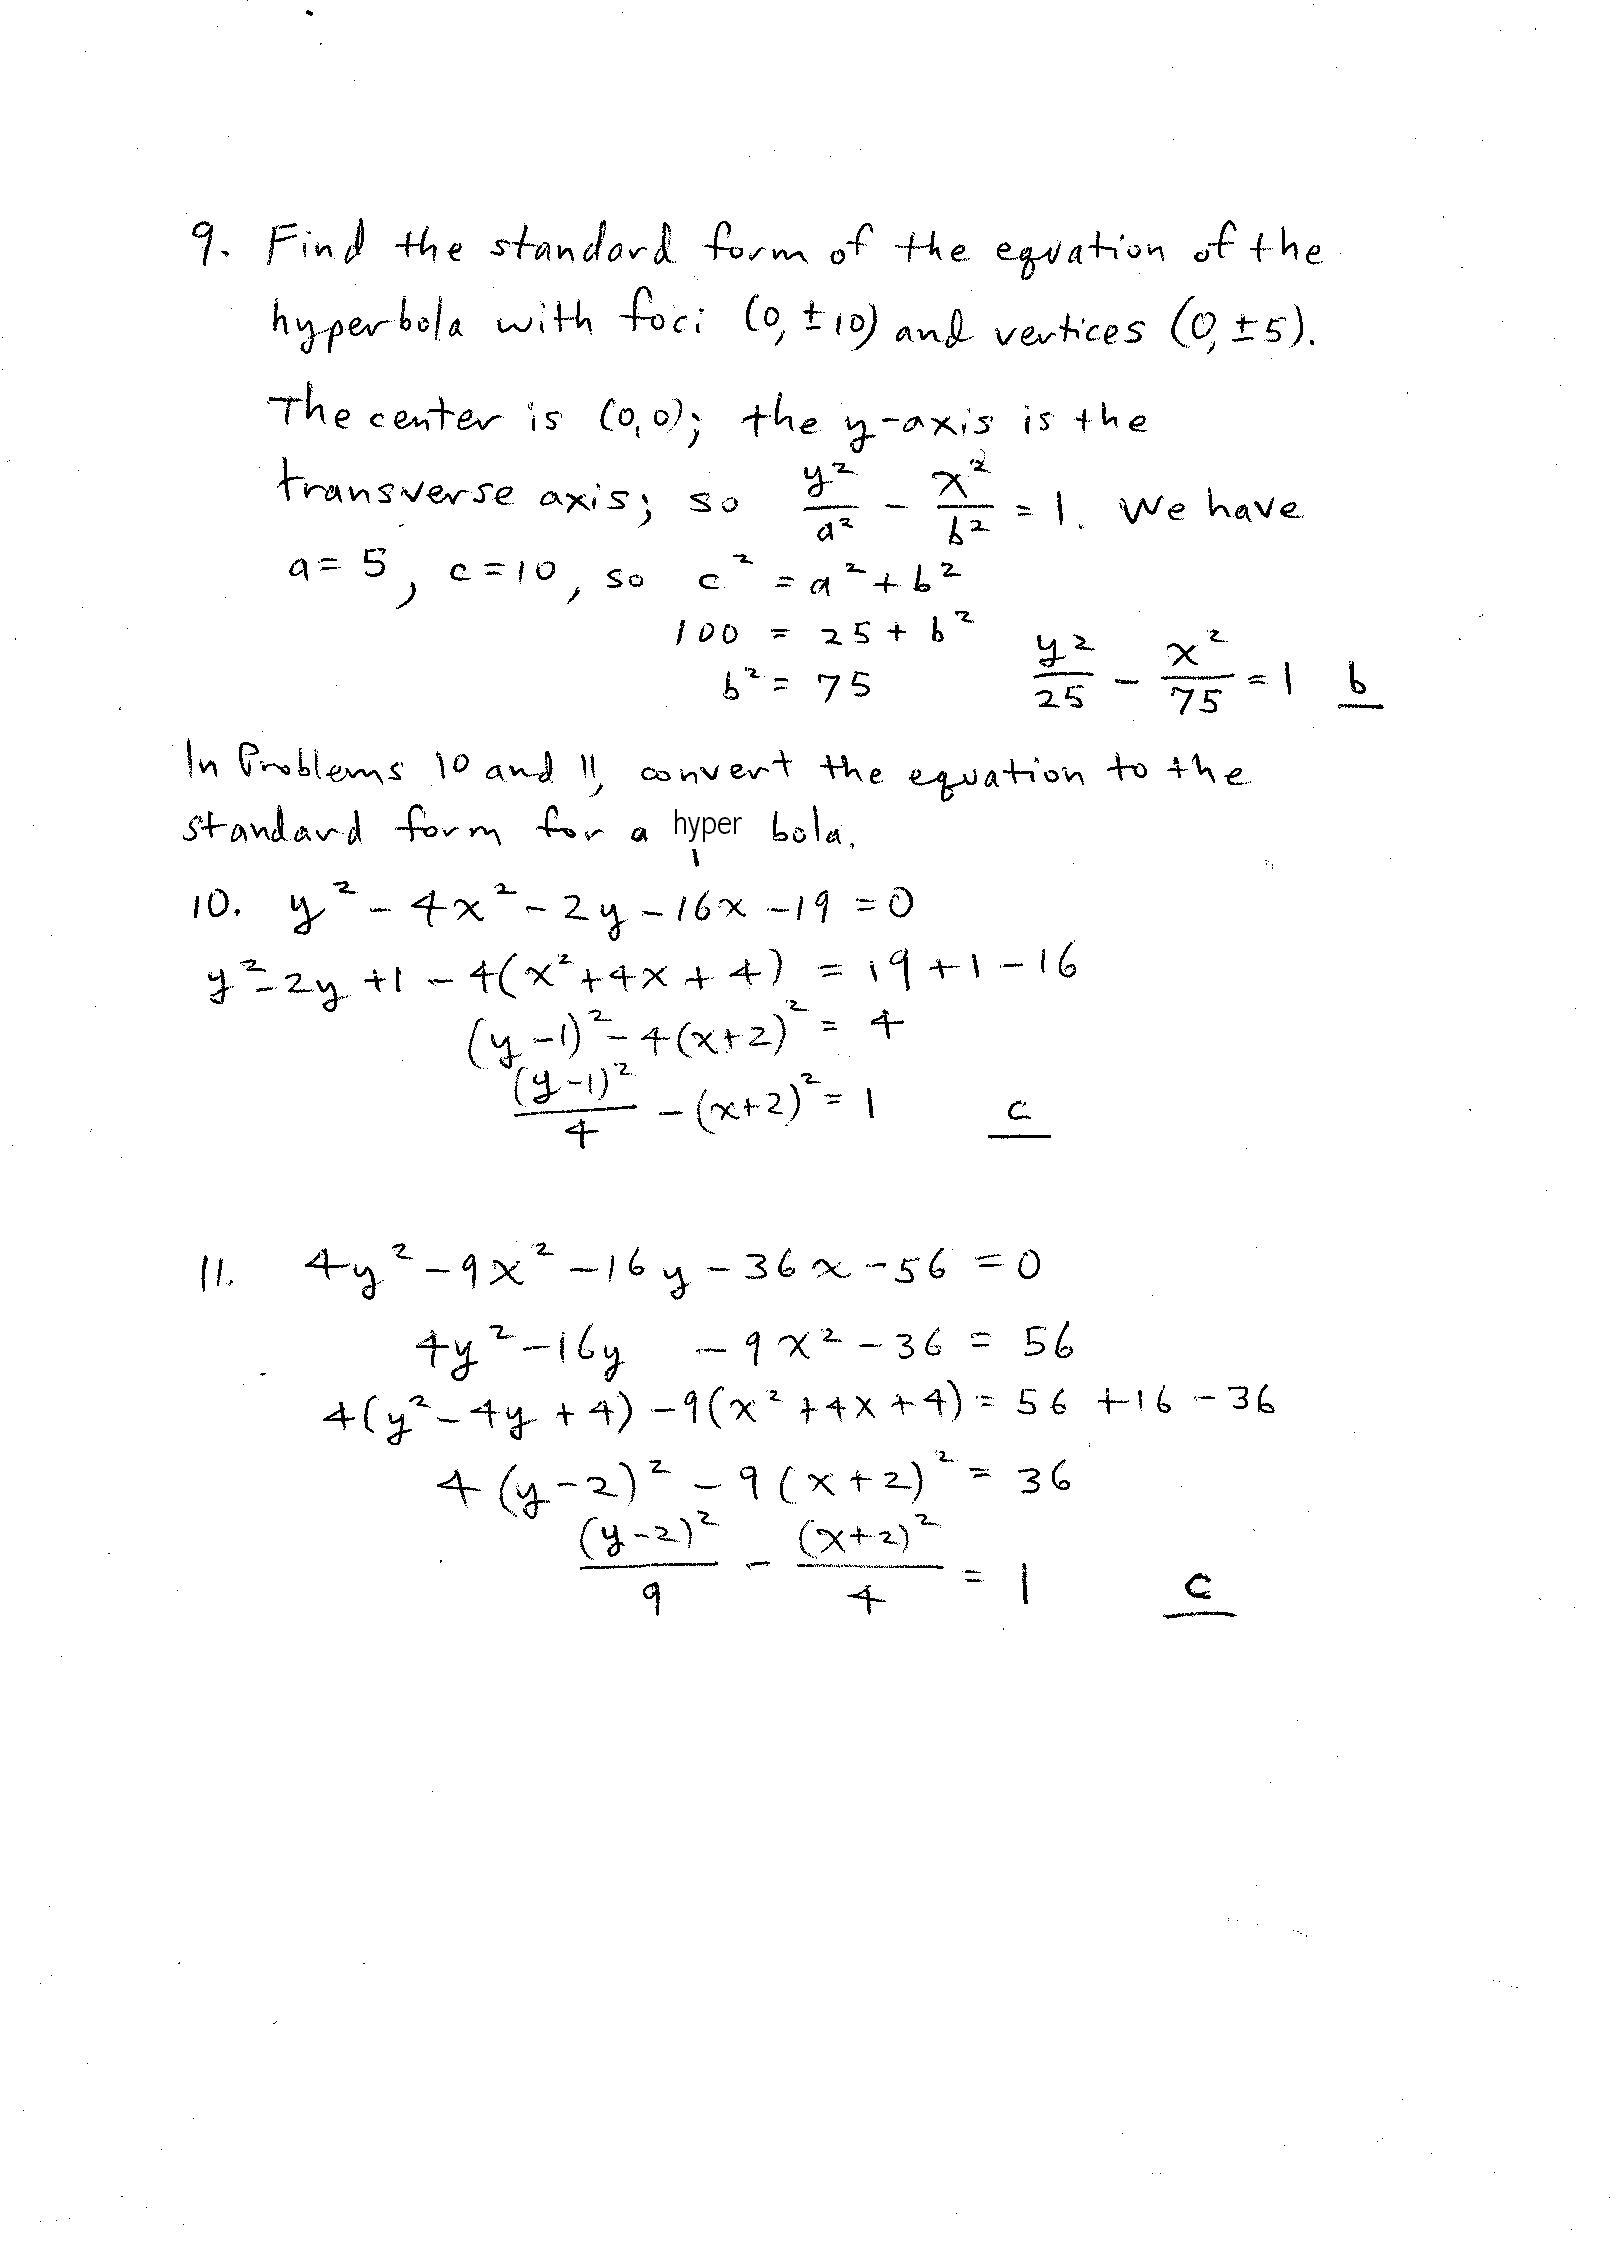 9. Find the standard form of the equation of the
hyperbola with foci (0, ±10) and vertices (0, ±5).
The center is (0,0); the y-axis is the
transverse axis; so y²/a² - x²/b² = 1. We have
a = 5, c = 10, so c² = a² + b²
100 = 25 + b²
b² = 75 y²/25 - x²/75 = 1 b
In Problems 10 and 11, convert the equation to the
standard form for a hyper bola.
10. y² - 4x² - 2y - 16x - 19 = 0
y² - 2y + 1 - 4(x² + 4x + 4) = 19 + 1 - 16
(y - 1)² - 4(x + 2)² = 4
(y - 1)²/4 - (x + 2)² = 1 c
11. 4y² - 9x² - 16y - 36x - 56 = 0
4y² - 16y - 9x² - 36 = 56
4(y² - 4y + 4) - 9(x² + 4x + 4) = 56 + 16 - 36
4(y - 2)² - 9(x + 2)² = 36
(y - 2)²/9 - (x + 2)²/4 = 1 c